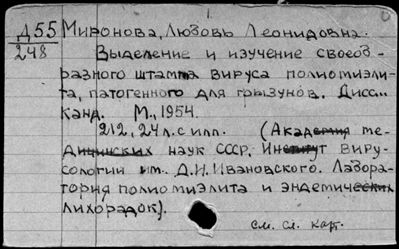 Д55 Миронова, Любовь Леонидовна.
248 Выделение и изучение своеоб-
разного штамма вируса полиомиэли-
та, патогенного для грызунов. Дисс...
канд. М., 1954.
212, 24 л. с илл. (Академия ме-
дицинских наук СССР. Институт виру-
сологии им. Д.И. Ивановского. Лабора-
тория полиомиэлита и эндемических
лихорадок).
см. сл. карт.